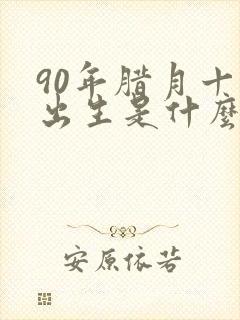 90年腊月十
出生是什麽
安原依若